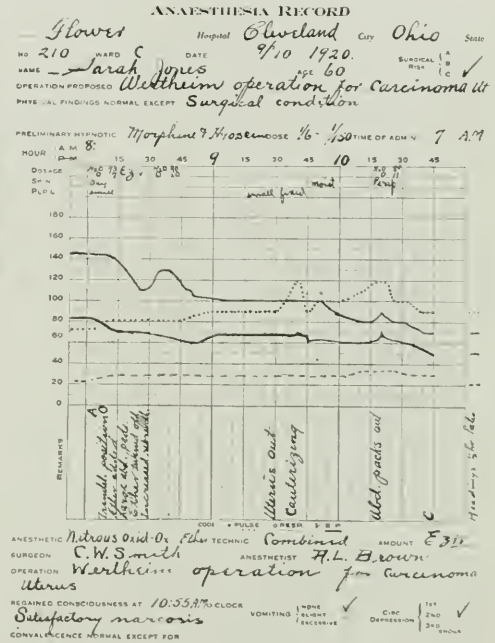 ANAESTHESIA RECORD
Flower Hospital Cleveland City Ohio State
No 210 WARD C DATE 9/10 1920. SURGICAL RISK A B C ✓
NAME Sarah Jones AGE 60
OPERATION PROPOSED Wertheim operation for Carcinoma Ut
PHYSICAL FINDINGS NORMAL EXCEPT Surgical condition
PRELIMINARY HYPNOTIC Morphine & Hyoscin DOSE 1/6 - 1/150 TIME OF ADM'N 7 A.M
HOUR A M P M 8: 15 30 45 9 15 30 45 10 15 30 45
DOSAGE
SKIN Dry moist Persp
PUPIL small small fixed
180
160
140
120
100
80
60
40
20
0
REMARKS
A
Trendl. position O
Ether added
large abd. pads
Ether turned off
increased
Uterus out
Cauterizing
Abd. packs out
C
CODE • PULSE o RESP. B P
ANESTHETIC Nitrous Oxid-Ox Ether TECHNIC Combined AMOUNT
SURGEON C.W. Smith ANESTHETIST A.L. Brown
OPERATION Wertheim operation for Carcinoma
Uterus
REGAINED CONSCIOUSNESS AT 10:55 A.M. O'CLOCK VOMITING NONE SLIGHT EXCESSIVE ✓ CIRC DEPRESSION 1ST 2ND 3RD SHOCK ✓
Satisfactory narcosis
CONVALESCENCE NORMAL EXCEPT FOR